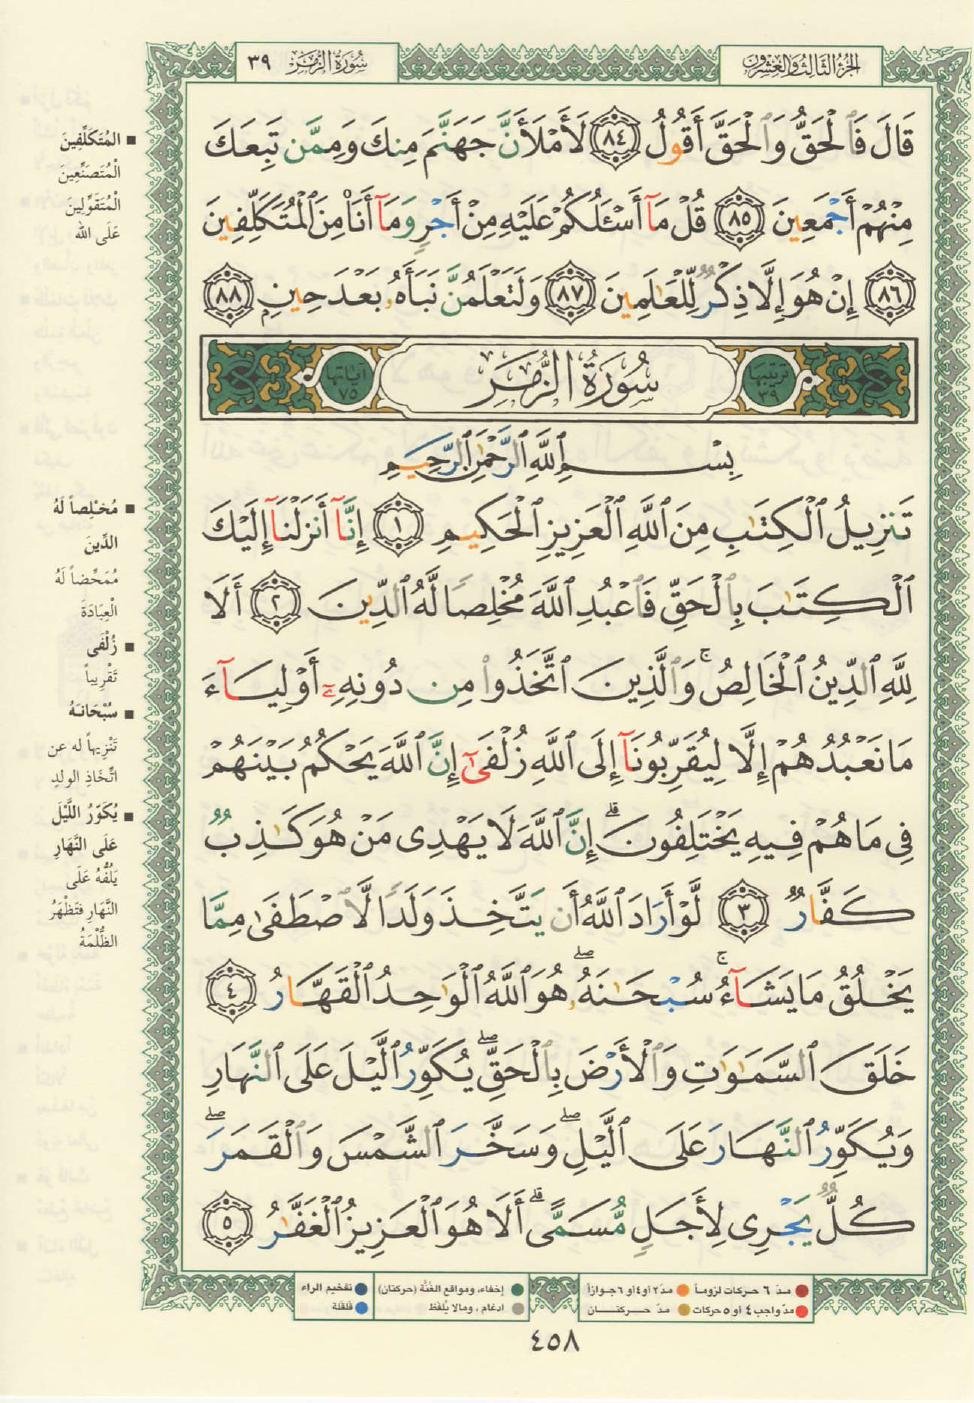 الجزء الثالث والعشرون
سُورَةُ الزُّمَر ٣٩
قَالَ فَٱلْحَقُّ وَٱلْحَقَّ أَقُولُ ٨٤ لَأَمْلَأَنَّ جَهَنَّمَ مِنكَ وَمِمَّن تَبِعَكَ
مِنْهُمْ أَجْمَعِينَ ٨٥ قُلْ مَآ أَسْـَٔلُكُمْ عَلَيْهِ مِنْ أَجْرٍ وَمَآ أَنَا۠ مِنَ ٱلْمُتَكَلِّفِينَ
٨٦ إِنْ هُوَ إِلَّا ذِكْرٌ لِّلْعَٰلَمِينَ ٨٧ وَلَتَعْلَمُنَّ نَبَأَهُۥ بَعْدَ حِينٍ ٨٨
ترتيبها ٣٩ سُورَةُ الزُّمَر آياتها ٧٥
بِسْمِ ٱللَّهِ ٱلرَّحْمَٰنِ ٱلرَّحِيمِ
تَنزِيلُ ٱلْكِتَٰبِ مِنَ ٱللَّهِ ٱلْعَزِيزِ ٱلْحَكِيمِ ١ إِنَّآ أَنزَلْنَآ إِلَيْكَ
ٱلْكِتَٰبَ بِٱلْحَقِّ فَٱعْبُدِ ٱللَّهَ مُخْلِصًا لَّهُ ٱلدِّينَ ٢ أَلَا
لِلَّهِ ٱلدِّينُ ٱلْخَالِصُ ۚ وَٱلَّذِينَ ٱتَّخَذُوا۟ مِن دُونِهِۦٓ أَوْلِيَآءَ
مَا نَعْبُدُهُمْ إِلَّا لِيُقَرِّبُونَآ إِلَى ٱللَّهِ زُلْفَىٰٓ إِنَّ ٱللَّهَ يَحْكُمُ بَيْنَهُمْ
فِى مَا هُمْ فِيهِ يَخْتَلِفُونَ ۗ إِنَّ ٱللَّهَ لَا يَهْدِى مَنْ هُوَ كَٰذِبٌ
كَفَّارٌ ٣ لَّوْ أَرَادَ ٱللَّهُ أَن يَتَّخِذَ وَلَدًا لَّٱصْطَفَىٰ مِمَّا
يَخْلُقُ مَا يَشَآءُ ۚ سُبْحَٰنَهُۥ ۖ هُوَ ٱللَّهُ ٱلْوَٰحِدُ ٱلْقَهَّارُ ٤
خَلَقَ ٱلسَّمَٰوَٰتِ وَٱلْأَرْضَ بِٱلْحَقِّ ۖ يُكَوِّرُ ٱلَّيْلَ عَلَى ٱلنَّهَارِ
وَيُكَوِّرُ ٱلنَّهَارَ عَلَى ٱلَّيْلِ ۖ وَسَخَّرَ ٱلشَّمْسَ وَٱلْقَمَرَ ۖ
كُلٌّ يَجْرِى لِأَجَلٍ مُّسَمًّى ۗ أَلَا هُوَ ٱلْعَزِيزُ ٱلْغَفَّٰرُ ٥
■ المُتَكَلِّفِينَ
الْمُتَصَنِّعِينَ
الْمُتَقَوِّلِينَ
عَلَى الله
■ مُخْلِصاً لَهُ
الدِّينَ
مُمَحِّضاً لَهُ
الْعِبَادَةَ
■ زُلْفَى
تَقْرِيباً
■ سُبْحَانَهُ
تَنْزِيهاً له عن
اتِّخَاذِ الولدِ
■ يُكَوِّرُ اللَّيْلَ
عَلَى النَّهَارِ
يَلُفُّهُ عَلَى
النَّهَارِ فتَظْهَرُ
الظُّلْمَةُ
مدّ ٦ حركات لزوماً مدّ ٢ أو ٤ أو ٦ جوازاً إخفاء، ومواقع الغُنَّة (حركتان) تفخيم الراء
مدّ واجب ٤ أو ٥ حركات مدّ حركتان ادغام، ومالا يُلفَظ قلقلة
٤٥٨